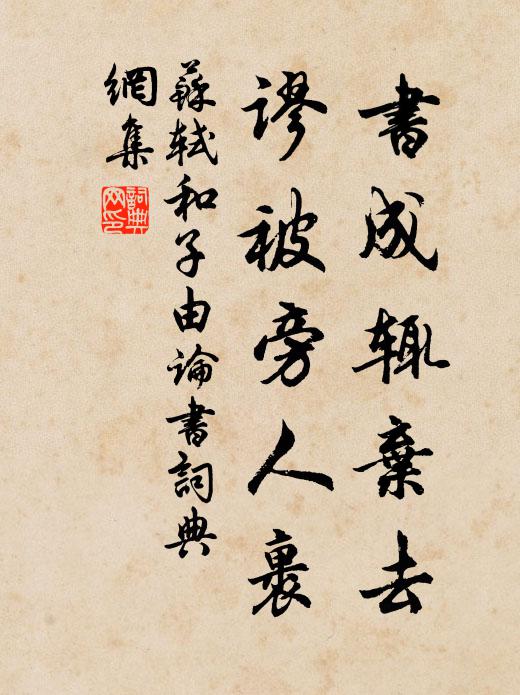 書成輙棄去
謬被旁人裹
蘇軾和子由論書詞典
網集
詞典
网印